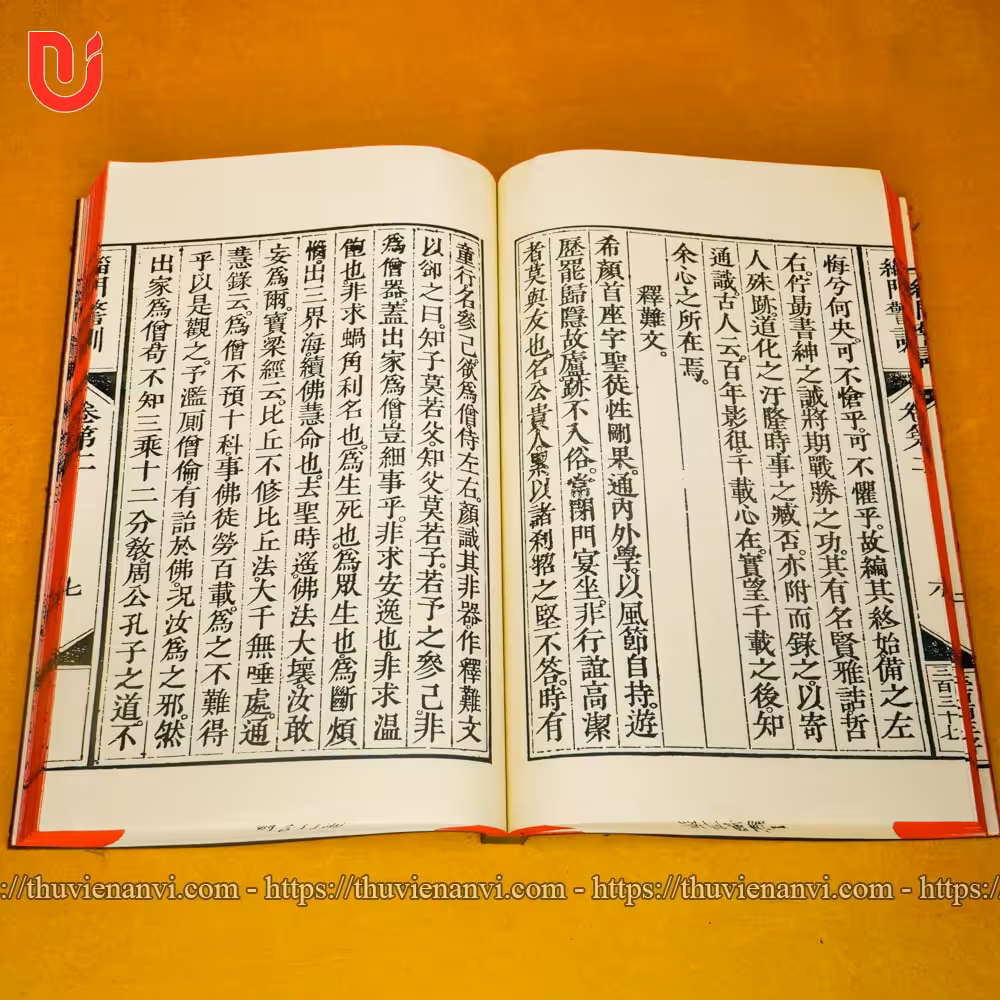 悔兮何央。可不愴乎。可不懼乎。故編其終始備之左
右。佇勗書紳之誡將期戰勝之功。其有名賢雅誥哲
人殊跡。道化之汙隆。時事之臧否。亦附而錄之。以寄
通識。古人云。百年影徂。千載心在。實望千載之後。知
余心之所在焉。
釋難文。
希顏首座字聖徒。性剛果。通內外學。以風節自持。遊
歷罷。歸隱故廬。跡不入俗。常閉門宴坐。非行誼高潔
者莫與友也。名公貴人累以諸利招之。堅不答。時有
三百三十七
童行名參己。欲爲僧侍左右。顏識其非器。作釋難文
以卻之曰。知子莫若父。知父莫若子。若予之參己非
爲僧器。蓋出家爲僧。豈細事乎。非求安逸也。非求温
飽也。非求蝸角利名也。爲生死也。爲眾生也。爲斷煩
惱。出三界海。續佛慧命也。去聖時遙。佛法大壞。汝敢
妄爲爾。寶梁經云。比丘不修比丘法。大千無唾處。通
慧錄云。爲僧不預十科。事佛徒勞百載。爲之不難得
乎。以是觀之。予濫厠僧倫。有詒於佛。況汝爲之邪。然
出家爲僧。苟不知三乘十二分教。周公孔子之道。不
緇門警訓
卷第二
七
://thuvienanvi.com - https://thuvienanvi.com - https://thuvienanvi.com - https://th